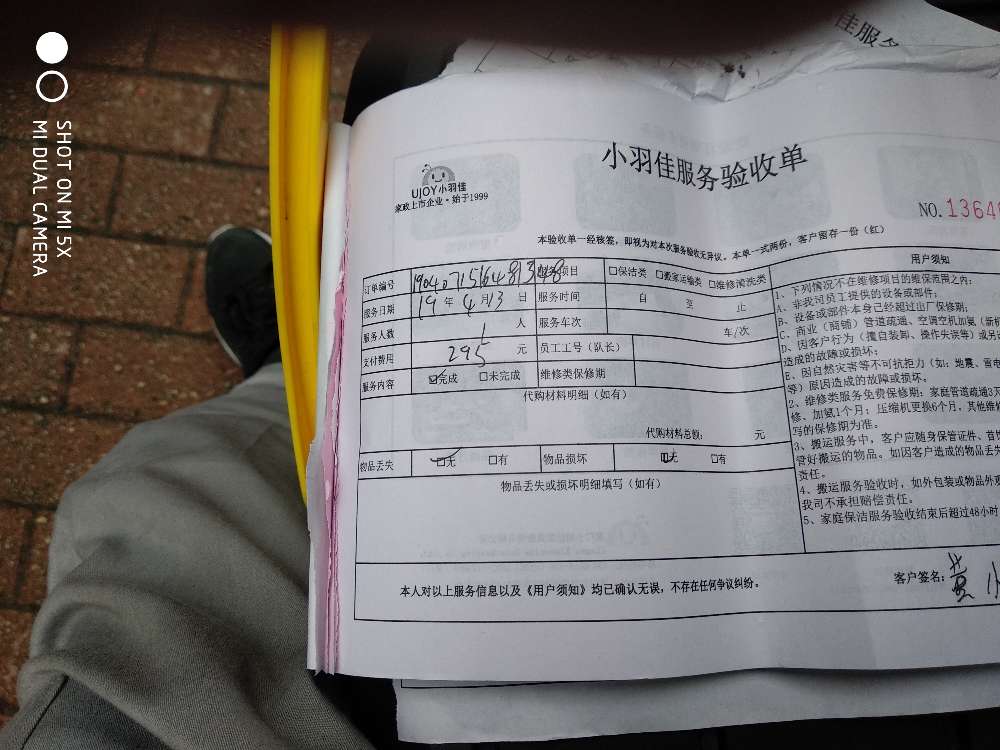 SHOT ON MI 5X
MI DUAL CAMERA
佳服务
小羽佳服务验收单
UJOY小羽佳
家政上市企业·始于1999
NO.1364
本验收单一经核签，即视为对本次服务验收无异议。本单一式两份，客户留存一份（红）
订单编号 项目 □保洁类 □搬家运输类 □维修清洗类
服务日期 19 年 4 月 13 日 服务时间 自 至 止
服务人数 1 人 服务车次 车/次
支付费用 295 元 员工工号（队长）
服务内容 ☑完成 □未完成 维修类保修期
代购材料明细（如有）
代购材料总额: 元
物品丢失 ☑无 □有 物品损坏 ☑无 □有
物品丢失或损坏明细填写（如有）
用户须知
1、下列情况不在维修项目的维保范围之内：
A、非我司员工提供的设备或部件；
B、设备或部件本身已经超过出厂保修期；
C、商业（商铺）管道疏通、空调空机加氨（新机
D、因客户行为（擅自装卸、操作失误等）或另
造成的故障或损坏；
E、因自然灾害等不可抗拒力（如：地震、雷电
等）原因造成的故障或损坏。
2、维修类服务免费保修期：家庭管道疏通3天
修、加氨1个月；压缩机更换6个月，其他维修
写的保修期为准。
3、搬运服务中，客户应随身保管证件、首饰
管好搬运的物品。如因客户造成的物品丢失
责任。
4、搬运服务验收时，如外包装或物品外观
我司不承担赔偿责任。
5、家庭保洁服务验收结束后超过48小时
本人对以上服务信息以及《用户须知》均已确认无误，不存在任何争议纠纷。
客户签名: 黄小